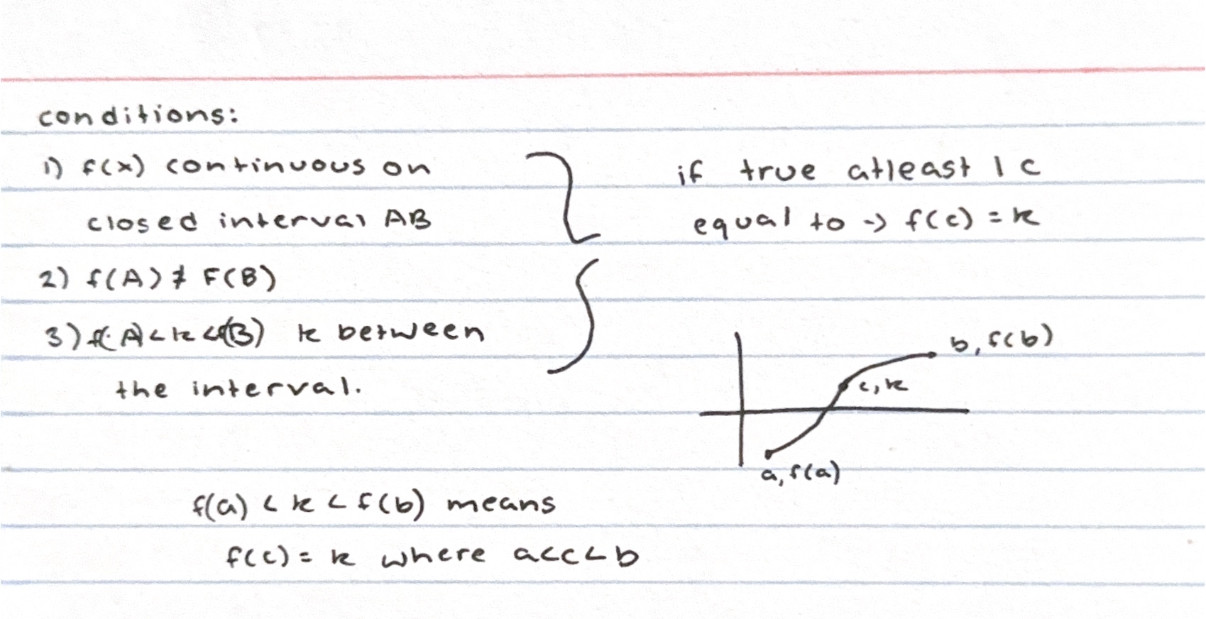 conditions:
1) f(x) continuous on
closed interval AB
2) f(A) ≠ F(B)
3) f(A)<k<f(B) k between
the interval.
if true atleast 1 c
equal to → f(c) = k
b, f(b)
c, k
a, f(a)
f(a) < k < f(b) means
f(c) = k where a<c<b